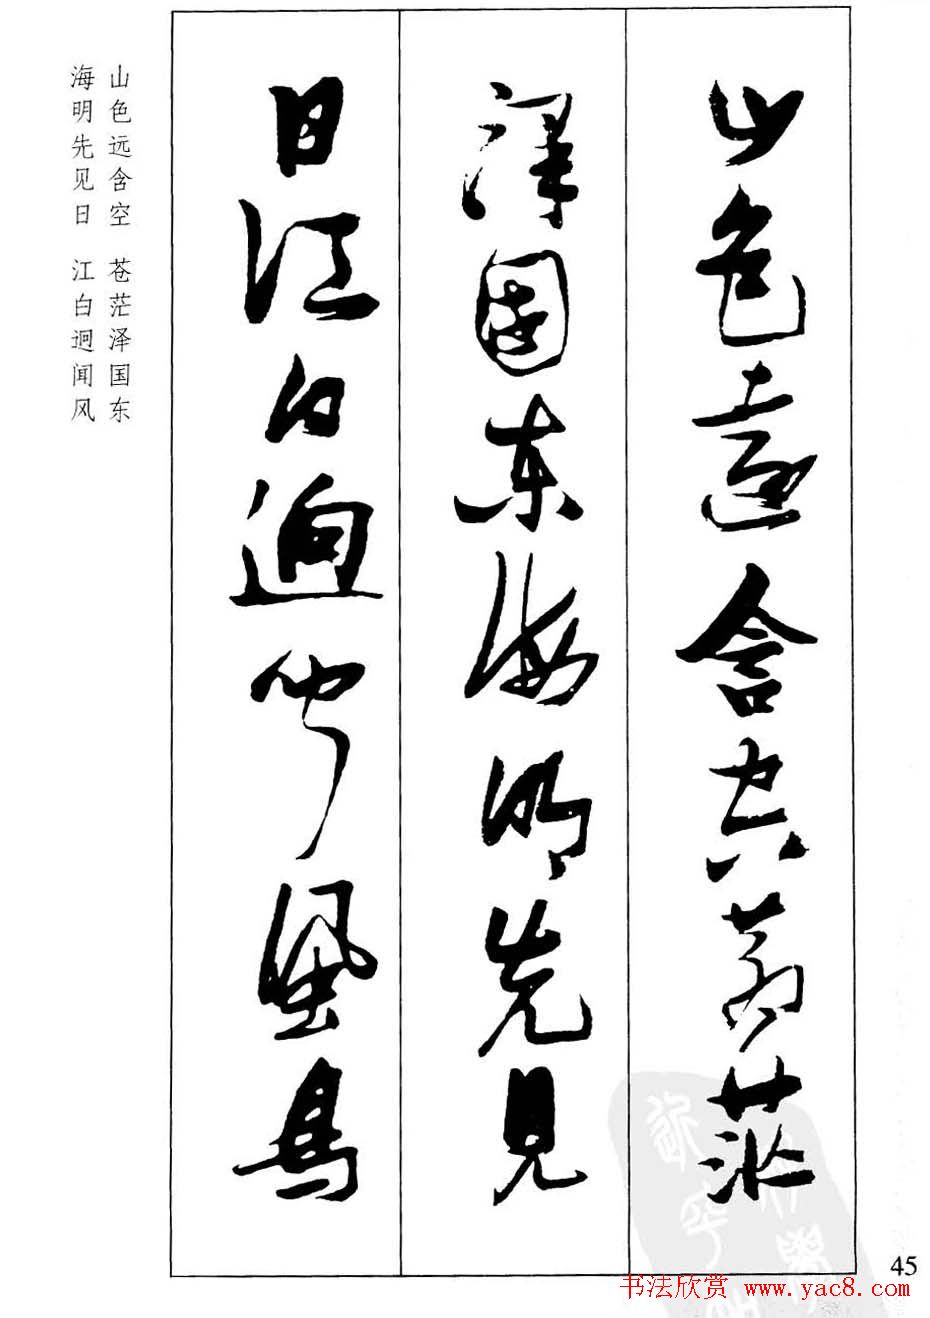 山色遠含空蒼茫
澤国东海明先見
日江白迥闻風鳥
山色远含空 苍茫泽国东
海明先见日 江白迥闻风
45
书法欣赏 www.yac8.com